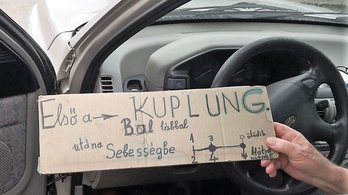 Első a → KUPLUNG.
Bal lábbal
utána Sebességbe
1 3 ötödik
2 4 Hátra